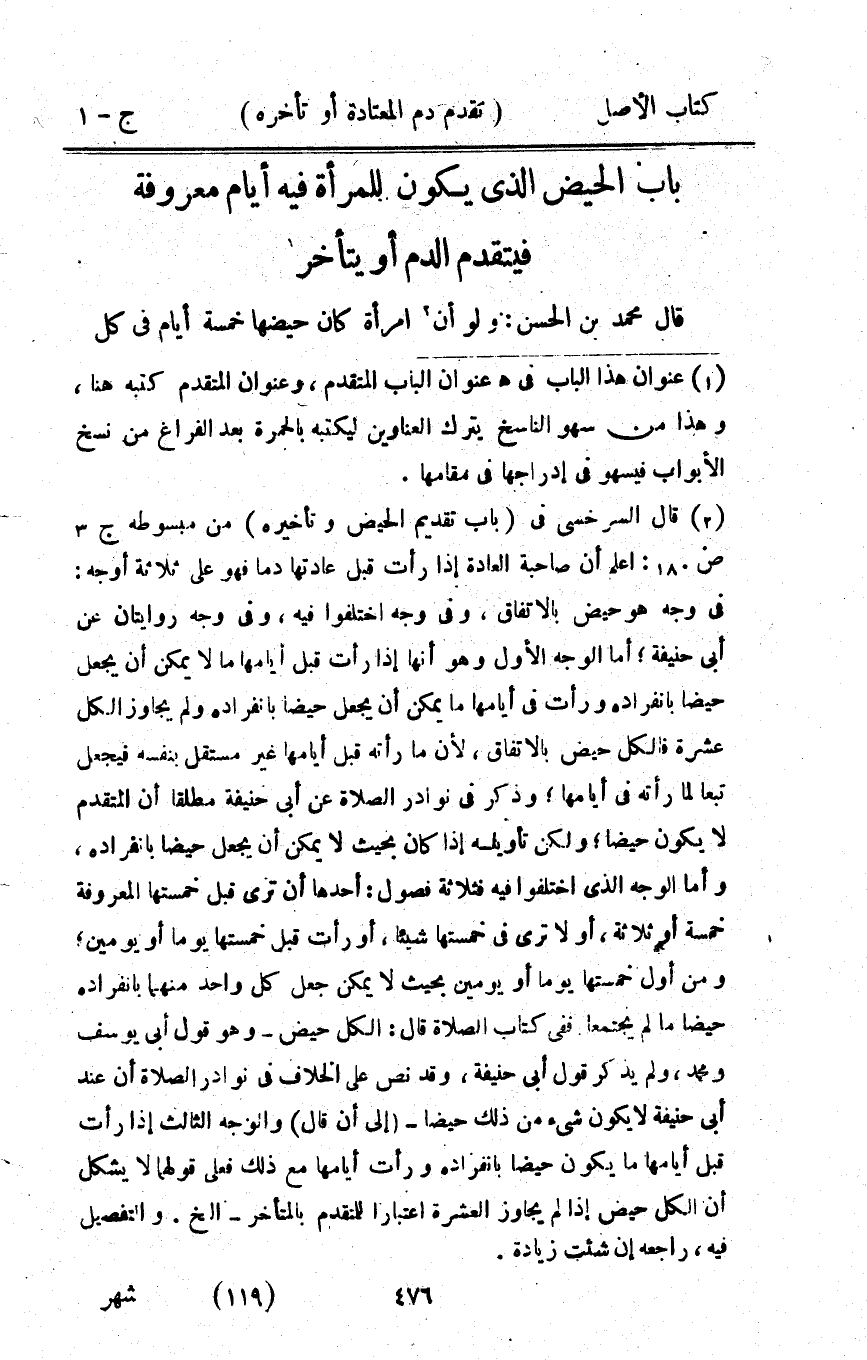 كتاب الأصل ( تقدم دم المعتادة أو تأخره ) ج - ١
باب الحيض الذى يكون للمرأة فيه أيام معروفة
فيتقدم الدم أو يتأخر١
قال محمد بن الحسن: ولو أن٢ امرأة كان حيضها خمسة أيام فى كل
(١) عنوان هذا الباب فى ه عنوان الباب المتقدم، وعنوان المتقدم كتبه هنا،
وهذا من سهو الناسخ يترك العناوين ليكتبه بالحمرة بعد الفراغ من نسخ
الأبواب فيسهو فى إدراجها فى مقامها.
(٢) قال السرخسى فى (باب تقديم الحيض و تأخيره) من مبسوطه ج ٣
ص ١٨٠: اعلم أن صاحبة العادة إذا رأت قبل عادتها دما فهو على ثلاثة أوجه:
فى وجه هو حيض بالاتفاق، وفى وجه اختلفوا فيه، وفى وجه روايتان عن
أبى حنيفة؛ أما الوجه الأول وهو أنها إذا رأت قبل أيامها ما لا يمكن أن يجعل
حيضا بانفراده ورأت فى أيامها ما يمكن أن يجعل حيضا بانفراده ولم يجاوز الكل
عشرة فالكل حيض بالاتفاق، لأن ما رأته قبل أيامها غير مستقل بنفسه فيجعل
تبعا لما رأته فى أيامها؛ وذكر فى نوادر الصلاة عن أبى حنيفة مطلقا أن المتقدم
لا يكون حيضا؛ ولكن تأويله إذا كان بحيث لا يمكن أن يجعل حيضا بانفراده،
وأما الوجه الذى اختلفوا فيه فثلاثة فصول: أحدها أن ترى قبل خمستها المعروفة
خمسة أو ثلاثة، أو لا ترى فى خمستها شيئا، أو رأت قبل خمستها يوما أو يومين؛
ومن أول خمستها يوما أو يومين بحيث لا يمكن جعل كل واحد منهما بانفراده
حيضا ما لم يجتمعا. ففى كتاب الصلاة قال: الكل حيض - وهو قول أبى يوسف
ومحمد، ولم يذكر قول أبى حنيفة، وقد نص على الخلاف فى نوادر الصلاة أن عند
أبى حنيفة لا يكون شىء من ذلك حيضا - (إلى أن قال) والوجه الثالث إذا رأت
قبل أيامها ما يكون حيضا بانفراده ورأت أيامها مع ذلك فعلى قولهما لا يشكل
أن الكل حيض إذا لم يجاوز العشرة اعتبارا للمتقدم بالمتأخر - الخ. والتفصيل
فيه، راجعه إن شئت زيادة.
٤٧٦ (١١٩) شهر